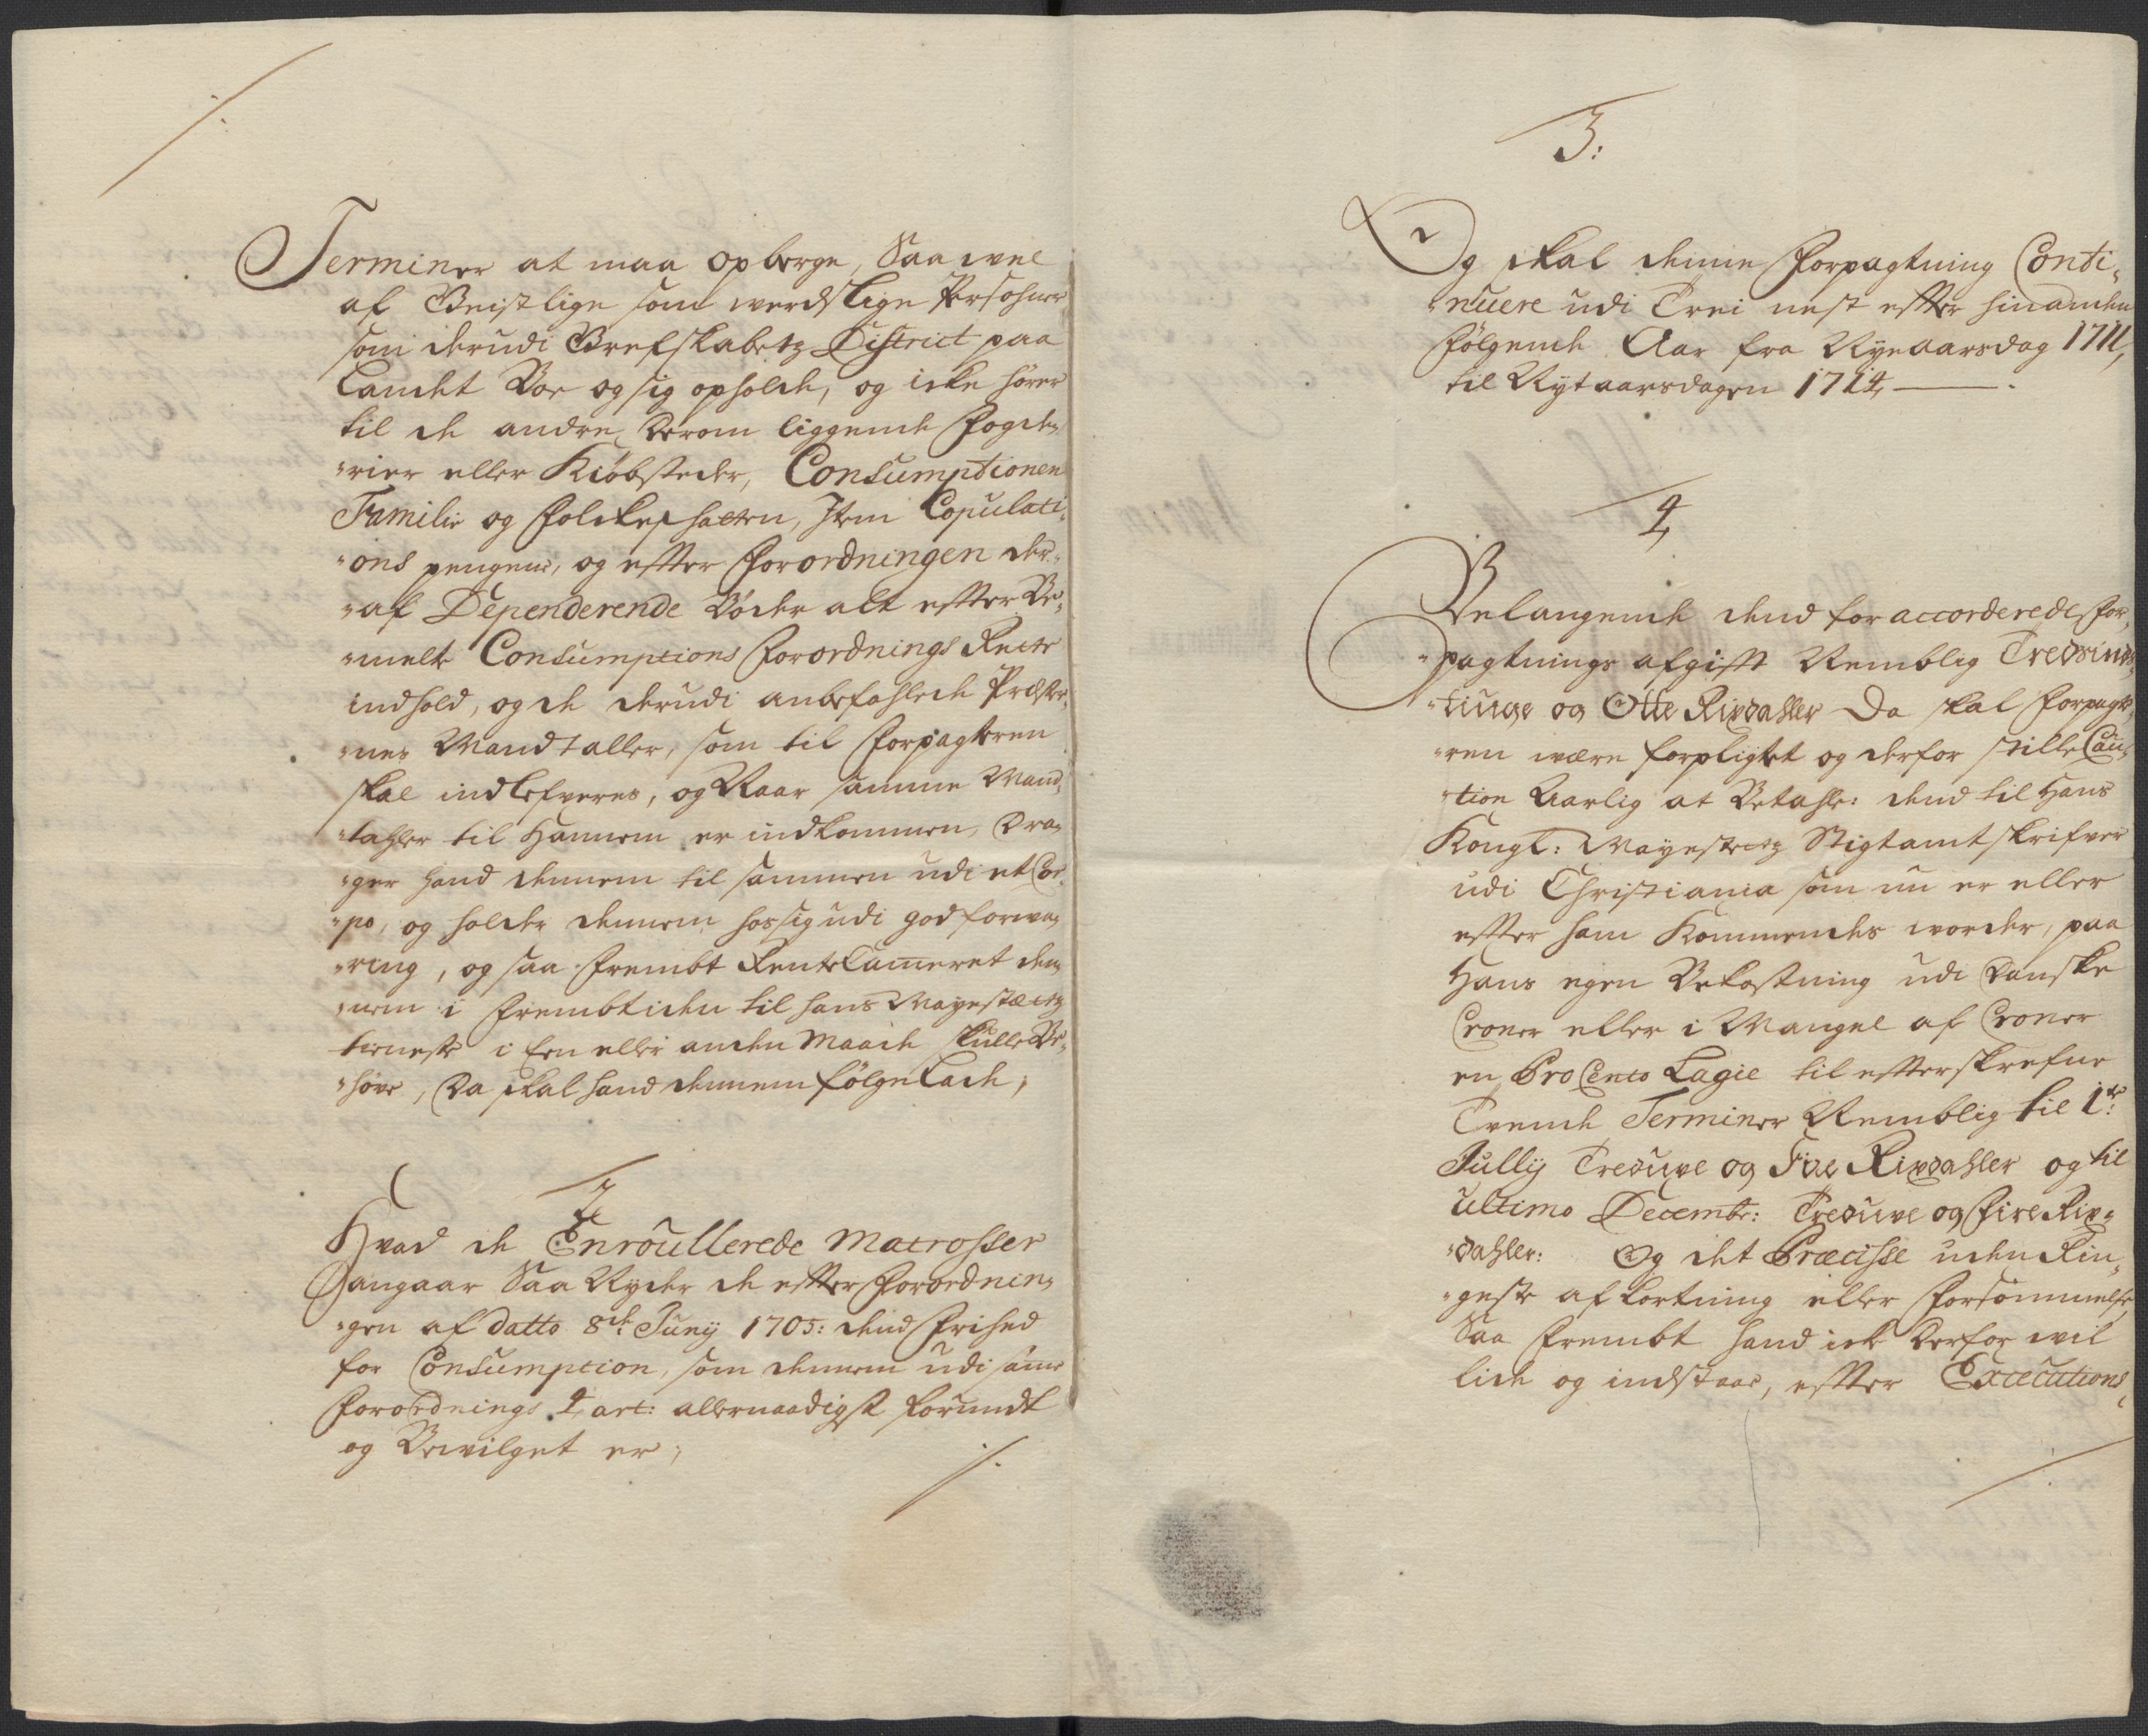 Terminer at maa opberge, Saa vel
af Geistlige som werdslige Persohner
som derudi Grefskabetz District paa
Landet Boe og sig opholde, og icke hører
til de andre derom liggende Fogde-
"rier eller Kiøbsteder, Consumptionen
Familie og Folckeskatten, Item Copulati-
"ons pengene, og effter Forordningen der-
"af Dependerende Bøder alt effter Be-
"melte Consumptions Forordnings Rette
indhold, og de derudi anbefahlede Præster-
"nes Mandtaller, som til Forpagteren
skal indlefveres, og Naar samme Mand-
"tahler til Hannem er indkommen, Dra-
"ger hand dennem til sammen udi et Cor-
"po, og holder dennem hos sig udi god forva-
"ring, og saa frembt RenteCameret den-
"nem i frembtiden til hans Mayestætz
tieneste i Een eller anden Maade skulle Be-
"høve, Da skal hand dennem følge Lade,
2
Hvad de Enroullerede Matrosser
Aangaar Saa Nyder de effter Forordnin-
"gen af datto 8de Junij 1705: dend Frihed
for Consumption, som dennem udi samme
Forordnings 4 art: allernaadigst forundt
og Bevilget er,
3:
Og skal denne Forpagtning Conti-
"nuere udi Trei nest effter hinanden
Følgende Aar fra Nyeaarsdag 1711,
til Nytaarsdagen 1714
4
Belangende dend for accorderede For-
"pagtnings afgifft Nemblig Tredsinds-
"tiuge og Otte Rixdahler Da skal Forpagte-
"ren være forpligtet og derfor stille Cau-
"tion Aarlig at Betahle: dend til Hans
Kongl: Mayestetz Stigtamtskrifver
udi Christiania som nu er eller
effter ham Kommendes vorder, paa
Hans egen Bekostning udi Danske
Croner eller i Mangel af Croner
en Pro Cento Lagie til effterskrefne
Tvende Terminer Nemblig til 1te:
Jullij Tredive og Fire Rixdahler og til
ultimo Decembr: Tredive og Fire Rix-
"dahler: Og det Præcisse uden Rin-
"geste afkortning eller Forsømmelse
Saa frembt hand icke derfor vil
lide og indstaae, effter Executions